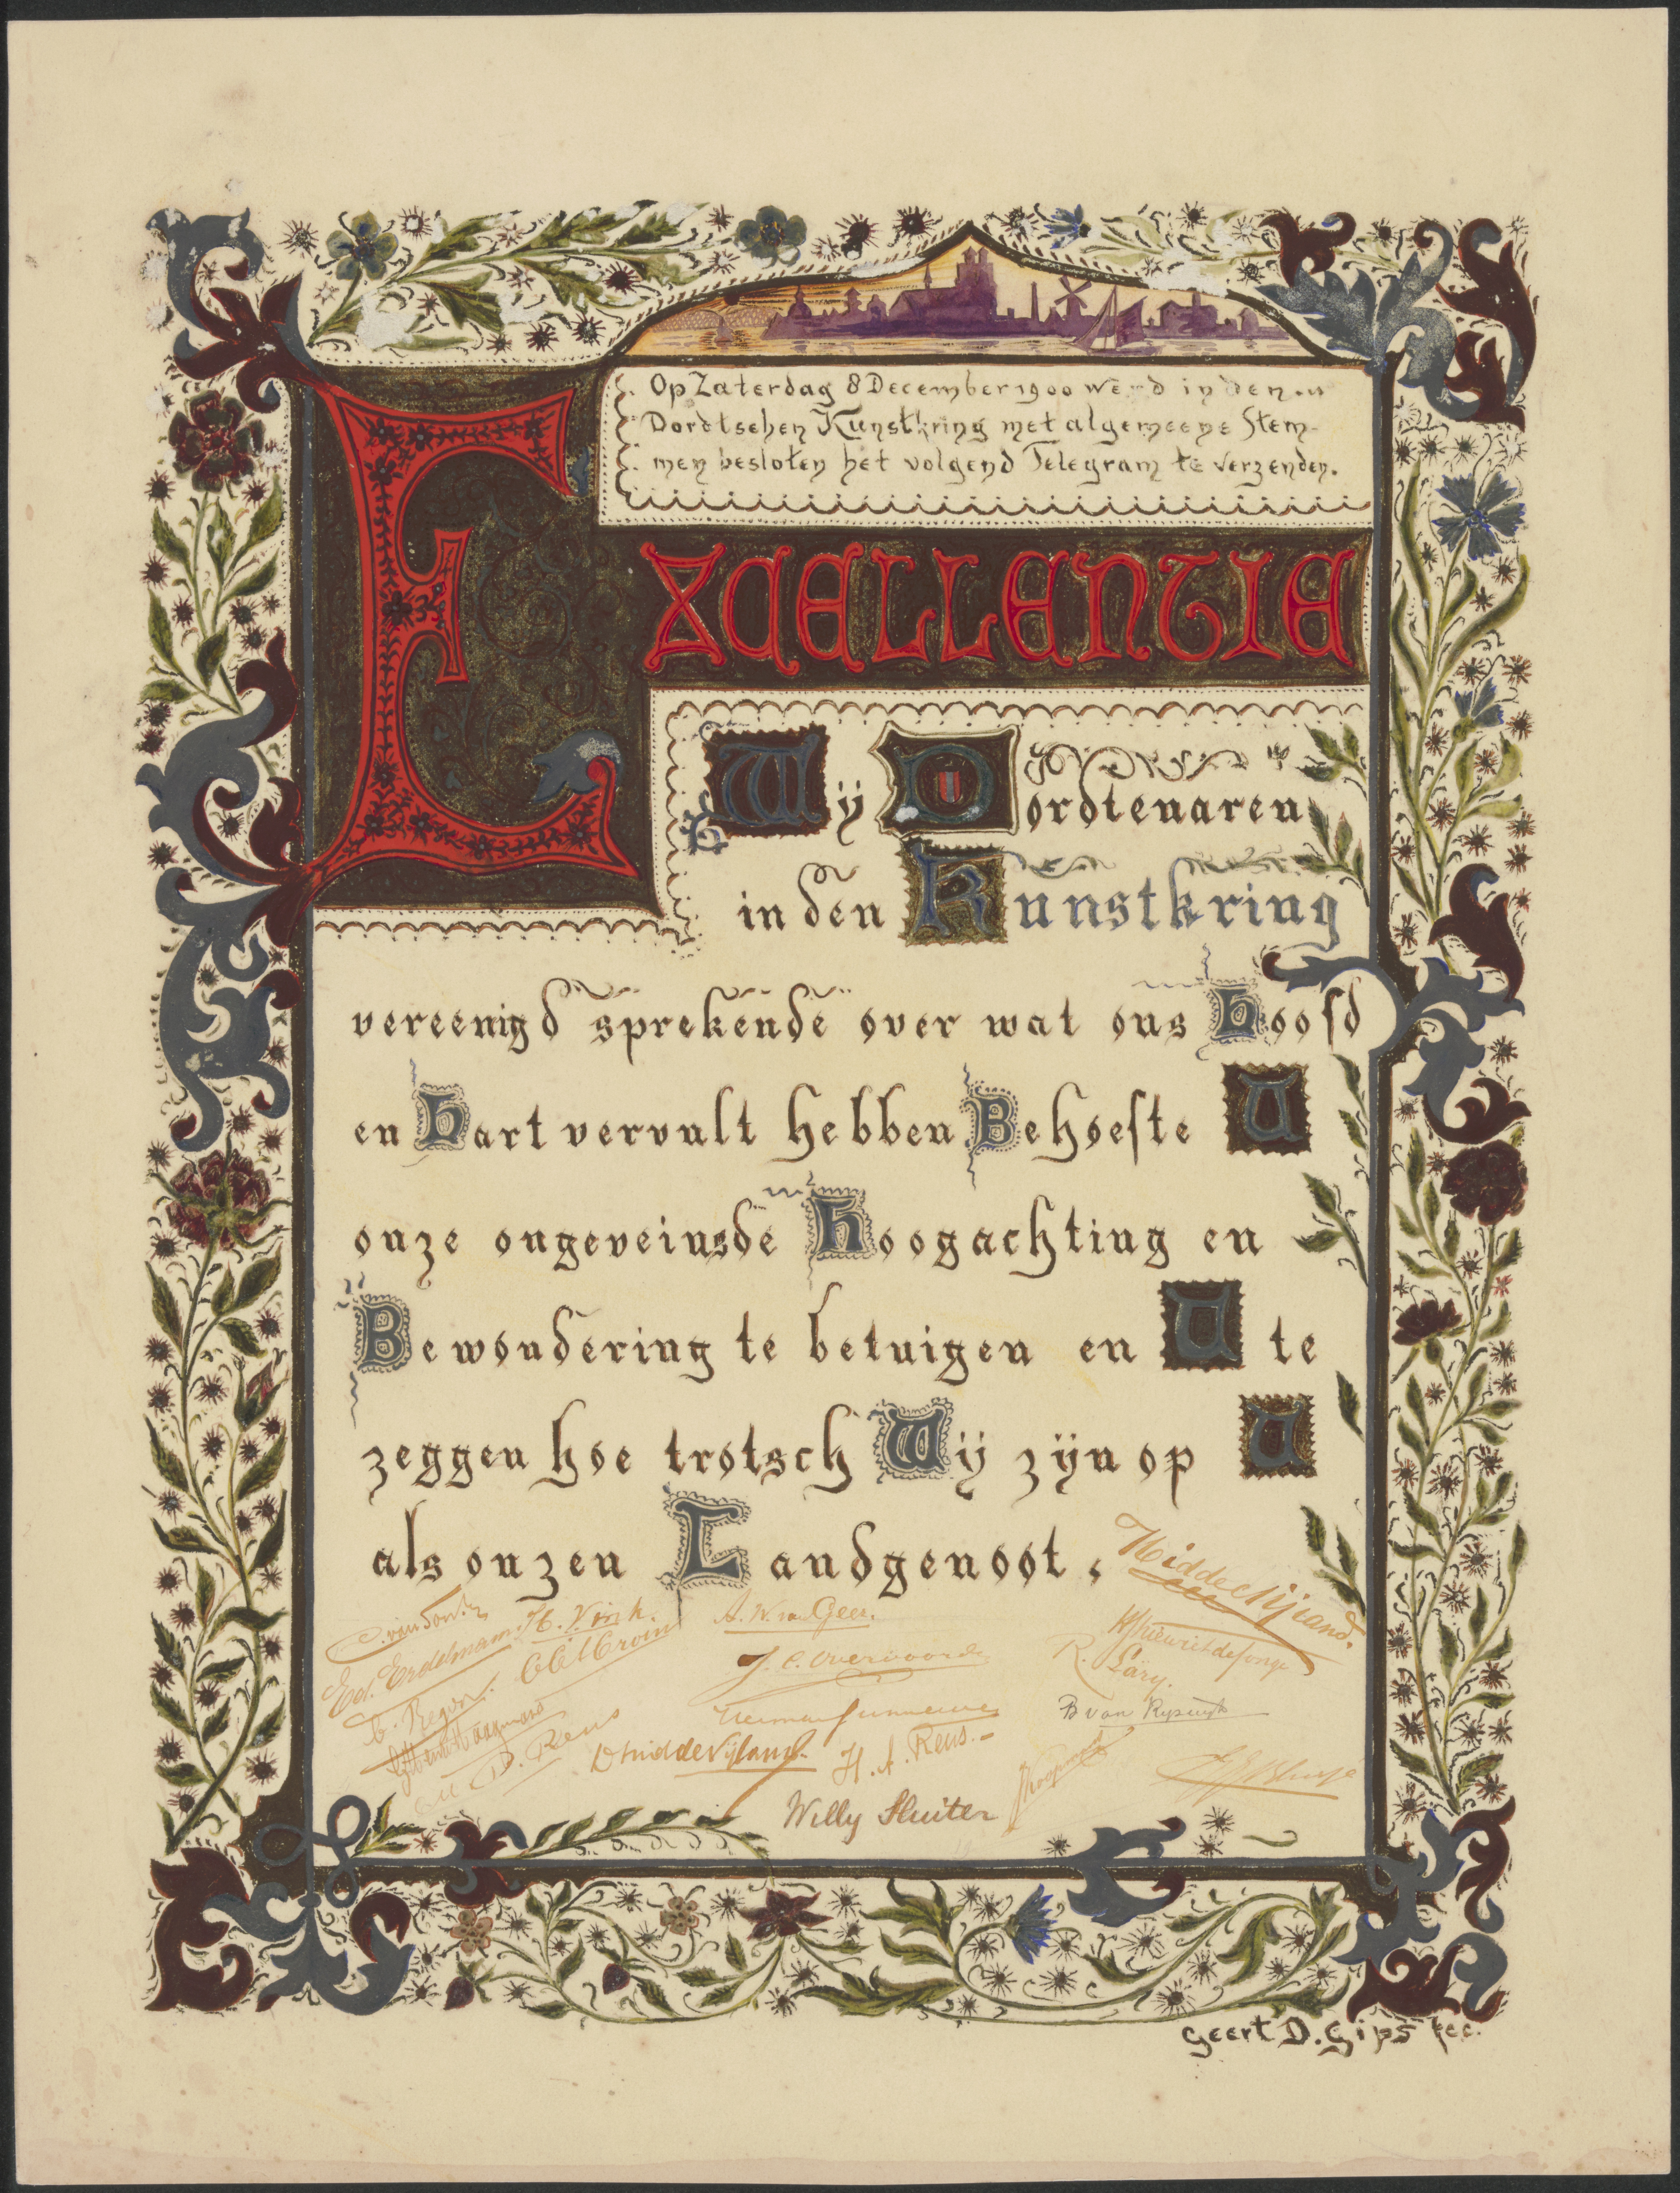 Op Zaterdag 8 December 1900 werd in den
Dordtschen Kunstkring met algemeene Stem-
men besloten het volgend Telegram te verzenden.
EXCELLENTIE
Wij Dordtenaren
in den Kunstkring
vereenigd sprekende over wat ons Hoofd
en Hart vervult hebben Behoefte U
onze ongeveinsde Hoogachting en
Bewondering te betuigen en U te
zeggen hoe trotsch Wij zijn op U
als onzen Landgenoot.
H. Vink.
Ed. Erdelman.
J. C. Overvoorde
R. Lary.
D. Reus
H. A. Reus.-
Willy Sluiter
Geert D. Gips fec.